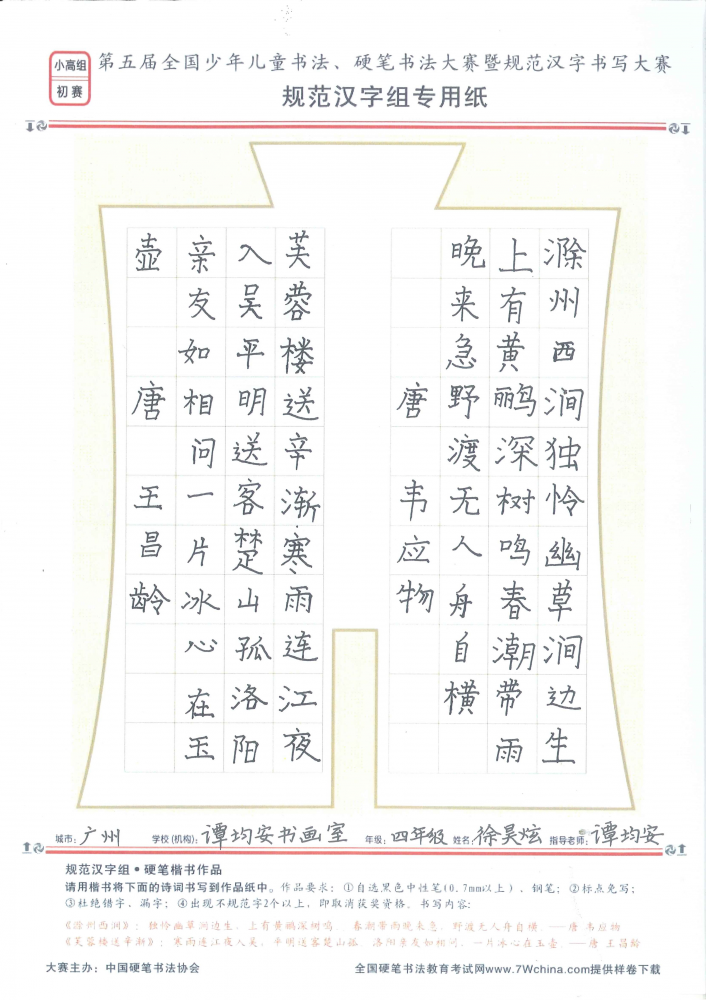 小高组
初赛
第五届全国少年儿童书法、硬笔书法大赛暨规范汉字书写大赛
规范汉字组专用纸
滁州西涧独怜幽草涧边生
上有黄鹂深树鸣春潮带雨
晚来急野渡无人舟自横
唐韦应物
芙蓉楼送辛渐寒雨连江夜
入吴平明送客楚山孤洛阳
亲友如相问一片冰心在玉
壶 唐 王昌龄
城市：广州 学校(机构)：谭均安书画室 年级：四年级 姓名：徐昊炫 指导老师：谭均安
规范汉字组•硬笔楷书作品
请用楷书将下面的诗词书写到作品纸中。作品要求：①自选黑色中性笔(0.7mm以上)、钢笔；②标点免写；
③杜绝错字、漏字；④出现不规范字2个以上，即取消获奖资格。书写内容：
《滁州西涧》：独怜幽草涧边生，上有黄鹂深树鸣。 春潮带雨晚来急，野渡无人舟自横。——唐 韦应物
《芙蓉楼送辛渐》：寒雨连江夜入吴，平明送客楚山孤。 洛阳亲友如相问，一片冰心在玉壶。——唐 王昌龄
大赛主办：中国硬笔书法协会 全国硬笔书法教育考试网www.7Wchina.com提供样卷下载